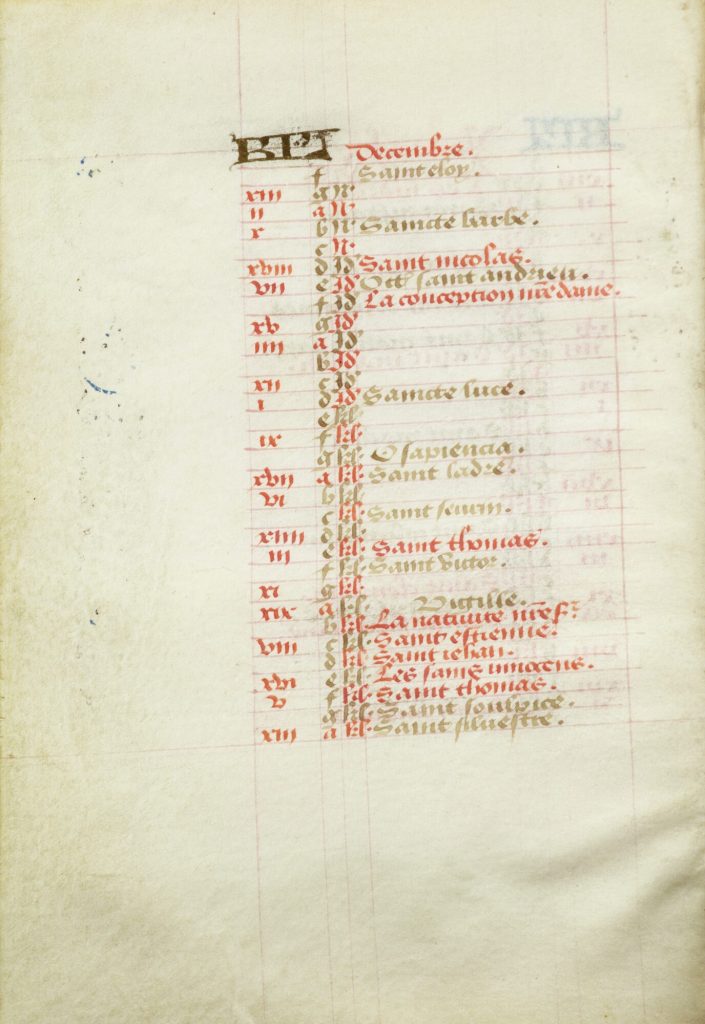 KL Decembre.
f Saint eloy.
xiii g N
ii a N
x b N Saincte barbe.
c N
xviii d Id Saint nicolas.
vii e Id Oct saint andrieu.
f Id La conception nre dame.
xv g Id
iiii a Id
b Id
xii c Id
i d Id Saincte luce.
e kl.
ix f kl.
g kl. O sapiencia.
xvii a kl. Saint ladre.
vi b kl.
c kl. Saint seurin.
xiiii d kl.
iii e kl. Saint thomas.
f kl. Saint victor.
xi g kl.
xix a kl. Vigille.
b kl. La nativite nres.
viii c kl. Saint estienne.
d kl. Saint iehan.
xvi e kl. Les sains innocens.
v f kl. Saint thomas.
g kl. Saint soulpice.
xiii a kl. Saint silvestre.